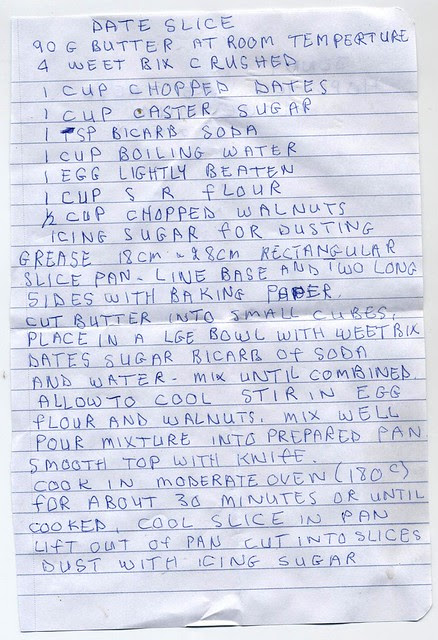 DATE SLICE
90 G BUTTER AT ROOM TEMPERTURE
4 WEET BIX CRUSHED
1 CUP CHOPPED DATES
1 CUP CASTER SUGAR
1 TSP BICARB SODA
1 CUP BOILING WATER
1 EGG LIGHTLY BEATEN
1 CUP S R FLOUR
1/2 CUP CHOPPED WALNUTS
ICING SUGAR FOR DUSTING
GREASE 18CM × 28CM RECTANGULAR
SLICE PAN. LINE BASE AND TWO LONG
SIDES WITH BAKING PAPER.
CUT BUTTER INTO SMALL CUBES.
PLACE IN A LGE BOWL WITH WEETBIX
DATES SUGAR BICARB OF SODA
AND WATER. MIX UNTIL COMBINED.
ALLOW TO COOL STIR IN EGG
FLOUR AND WALNUTS. MIX WELL
POUR MIXTURE INTO PREPARED PAN
SMOOTH TOP WITH KNIFE.
COOK IN MODERATE OVEN (180°C)
FOR ABOUT 30 MINUTES OR UNTIL
COOKED. COOL SLICE IN PAN
LIFT OUT OF PAN CUT INTO SLICES
DUST WITH ICING SUGAR